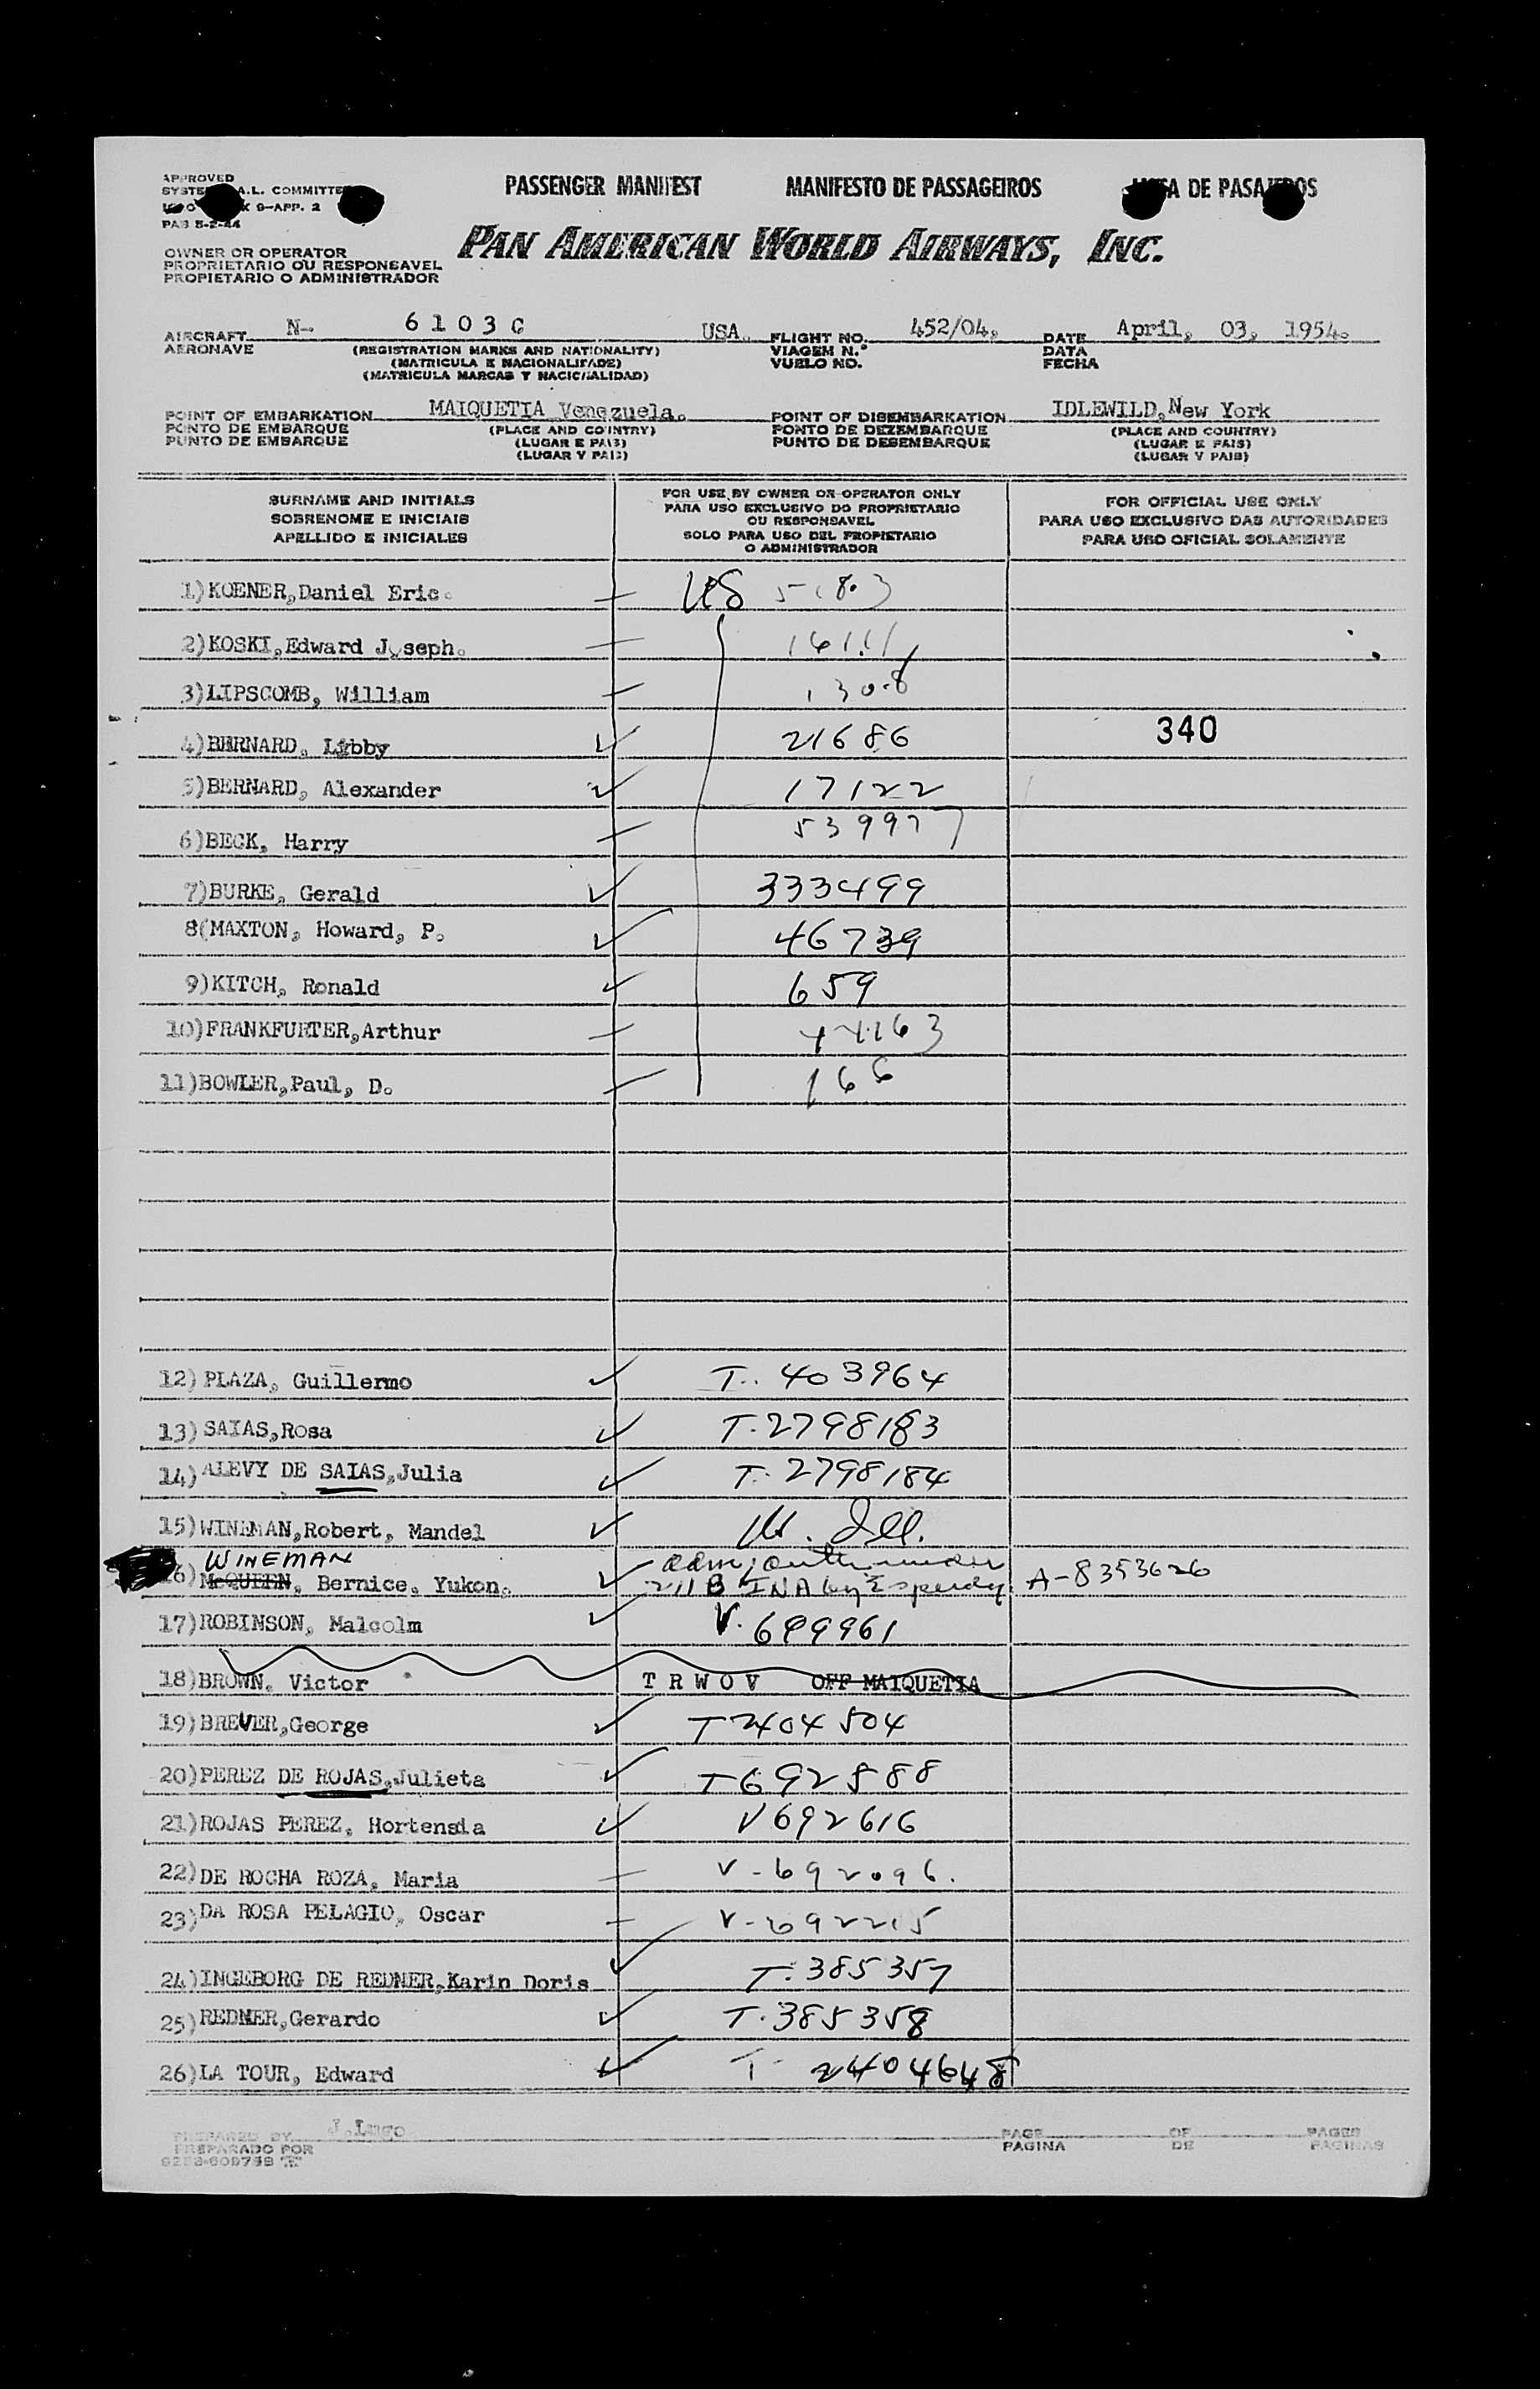 APPROVED
PASSENGER MANIFEST MANIFESTO DE PASSAGEIROS LISTA DE PASAJEROS
9-APP. 2
PAN AMERICAN WORLD AIRWAYS, INC.
OWNER OR OPERATOR
PROPRIETARIO OU RESPONSAVEL
PROPIETARIO O ADMINISTRADOR
AIRCRAFT N- 6 1 0 3 C USA. FLIGHT NO. 452/04. DATE April, 03, 1954.
AERONAVE (REGISTRATION MARKS AND NATIONALITY) VIAGEM N.º DATA
(MATRICULA E NACIONALIDADE) VUELO NO. FECHA
(MATRICULA MARCAS Y NACIONALIDAD)
POINT OF EMBARKATION MAIQUETIA Venezuela. POINT OF DISEMBARKATION IDLEWILD, New York
PONTO DE EMBARQUE (PLACE AND COUNTRY) PONTO DE DEZEMBARQUE (PLACE AND COUNTRY)
PUNTO DE EMBARQUE (LUGAR E PAIS) PUNTO DE DESEMBARQUE (LUGAR E PAIS)
(LUGAR Y PAIS) (LUGAR Y PAIS)
SURNAME AND INITIALS FOR USE BY OWNER OR OPERATOR ONLY FOR OFFICIAL USE ONLY
SOBRENOME E INICIAIS PARA USO EXCLUSIVO DO PROPRIETARIO PARA USO EXCLUSIVO DAS AUTORIDADES
OU RESPONSAVEL
APELLIDO E INICIALES SOLO PARA USO DEL PROPIETARIO PARA USO OFICIAL SOLAMENTE
O ADMINISTRADOR
1) KOENER, Daniel Eric. US
2) KOSKI, Edward Joseph.
3) LIPSCOMB, William 1308
4) BERNARD, Libby 21686 340
5) BERNARD, Alexander 17122
6) BECK, Harry 53997
7) BURKE, Gerald 333499
8( MAXTON, Howard, P. 46739
9) KITCH, Ronald 659
10) FRANKFURTER, Arthur 44163
11) BOWLER, Paul, D. 166
12) PLAZA, Guillermo T. 403964
13) SAIAS, Rosa T. 2798183
14) ALEVY DE SAIAS, Julia T. 2798184
15) WINEMAN, Robert, Mandel
WINEMAN adm; under
16) McQUEEN, Bernice, Yukon. 211 B INA by Esperdy. A-8353626
17) ROBINSON, Malcolm V. 699961
18) BROWN, Victor T R W O V OFF MAIQUETIA
19) BREVER, George T 2404504
20) PEREZ DE ROJAS, Julieta T 692588
21) ROJAS PEREZ, Hortensia V 692616
22) DE ROCHA ROZA, Maria V-692096.
23) DA ROSA PELAGIO, Oscar V-692215
24) INGEBORG DE REDNER, Karin Doris T. 385357
25) REDNER, Gerardo T. 385358
26) LA TOUR, Edward T- 2404648
PREPARED BY J. Lugo PAGE OF PAGES
PREPARADO POR PAGINA DE PAGINAS